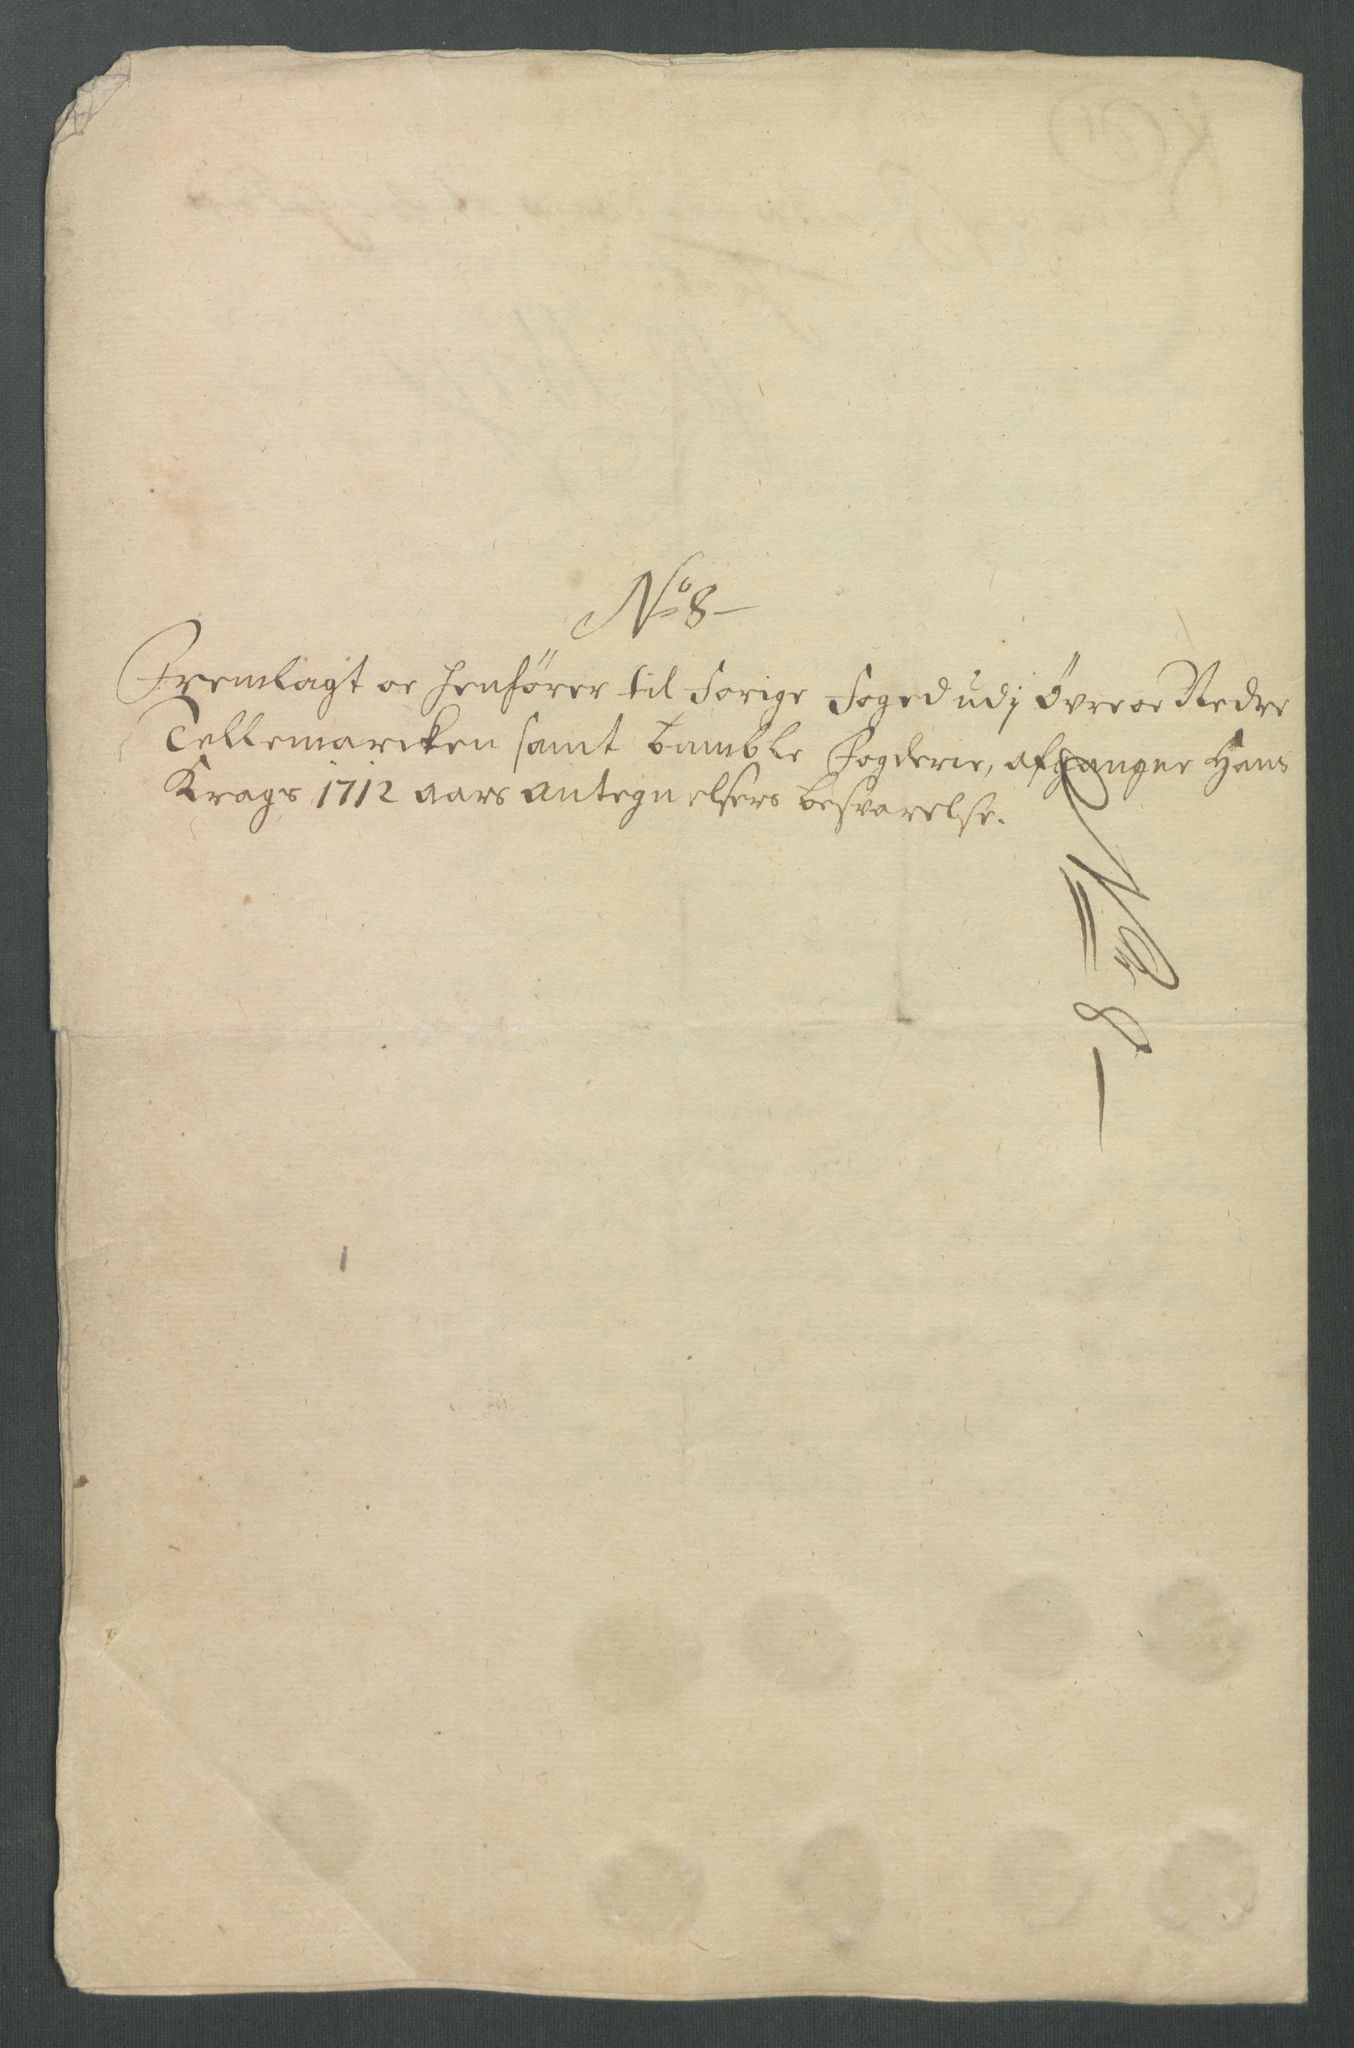 No 8
Fremlagt oc henfører til forige foged udj Øvre oc Nedre
Tellemarcken samt bamble fogderie, afgangne Hans
Krags 1712 aars antegnelsers besvarelse.
No 8